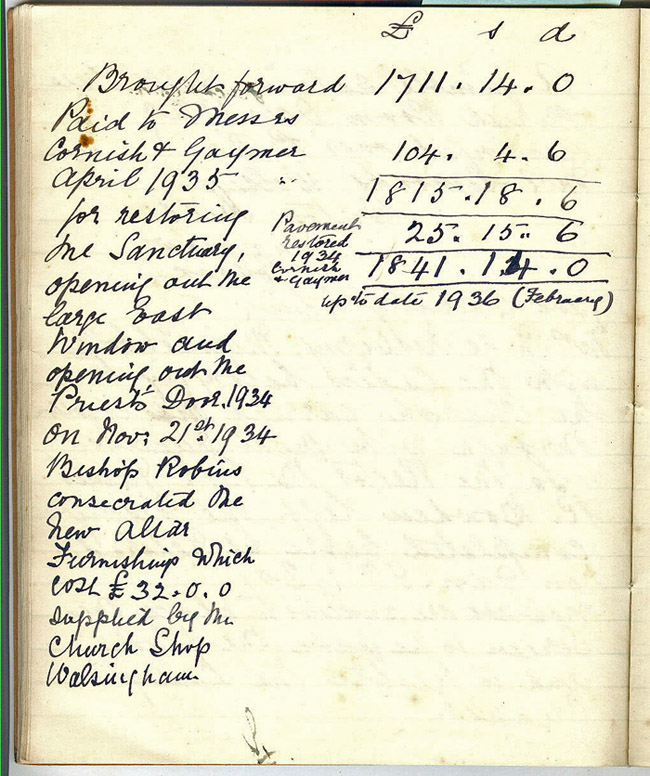 £ s d
Brought forward 1711. 14. 0
Paid to Messrs
Cornish & Gaymer 104. 4. 6
April 1935 " 1815. 18. 6
for restoring
the Sanctuary,
opening out the
large East
Window and
opening out the
Priest's Door, 1934
On Nov: 21st. 1934
Bishop Robins
consecrated the
new Altar
Furnishings which
cost £32.0.0
supplied by the
Church Shop
Walsingham
Pavement
restored
1934
Cornish
& Gaymer
25. 15. 6
1841. 14. 0
up to date 1936 (February)